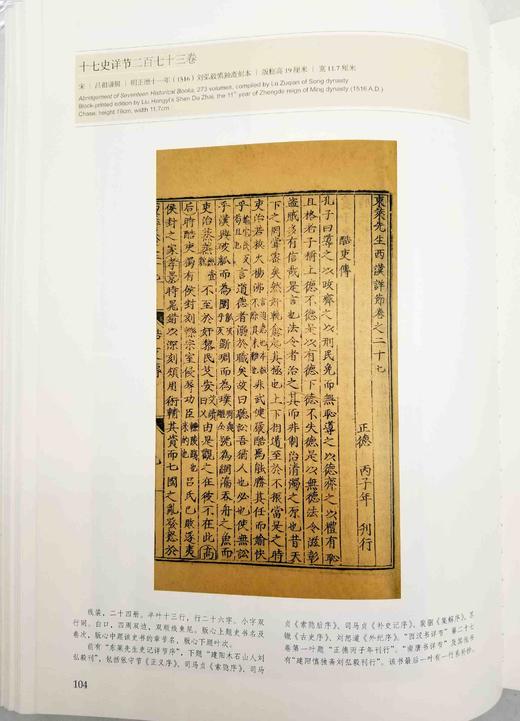 十七史详节二百七十三卷
宋 | 吕祖谦辑 | 明正德十一年（1516）刘弘毅慎独斋刻本 | 版框高19厘米 | 宽11.7厘米
Abridgement of Seventeen Historical Books, 273 volumes, compiled by Lü Zuqian of Song dynasty
Block-printed edition by Liu Hongyi's Shen Du Zhai, the 11th year of Zhengde reign of Ming dynasty (1516 A.D.)
Chase: height 19cm, width 11.7cm
東萊先生西漢詳節卷之二十七
正德 丙子年 刊行
酷吏傳
孔子曰導之以政齊之以刑民免而無恥導之以德齊之以禮有恥
且格老子稱上德不德是以有德下德不失德是以無德法令滋彰
盜賊多有信哉是言也法令者治之具而非制治清濁之源也昔天
下之罔嘗密矣然姦軌愈起其極也上下相遁至於不振當是之時
吏治若救火揚沸非武健嚴酷惡能勝其任而愉快
乎言道德者溺於職矣故曰聽訟吾猶人也必也使無訟
乎漢興破觚而為圜斲琱而為樸號為罔漏吞舟之魚而
吏治蒸蒸不至於姦黎民艾安由是觀之在彼不在此高
后時酷吏獨有侯封刻轢宗室侵辱功臣呂氏已敗遂夷
侯封之家孝景時鼂錯以深刻頗用術輔其資而七國之亂發怒於
线装，二十四册。半叶十三行，行二十六字。小字双
行同。白口，四周双边，双顺线鱼尾。版心上题史书名及
卷次，版心中题该史书的章节名，版心下题叶次。
前有“东莱先生史记详节序”，下题“建阳木石山人刘
弘毅刊”，包括张守节《正义序》、司马贞《索隐序》、司马
贞《索隐后序》、司马贞《补史记序》、裴骃《集解序》、苏
辙《古史序》、刘恕道《外纪序》。“西汉书详节”第二十七
卷第一叶题“正德丙子年刊行”。“南唐书详节”及其他书
有“建阳慎独斋刘弘毅刊行”。该书最后一叶有一行系补抄。
104